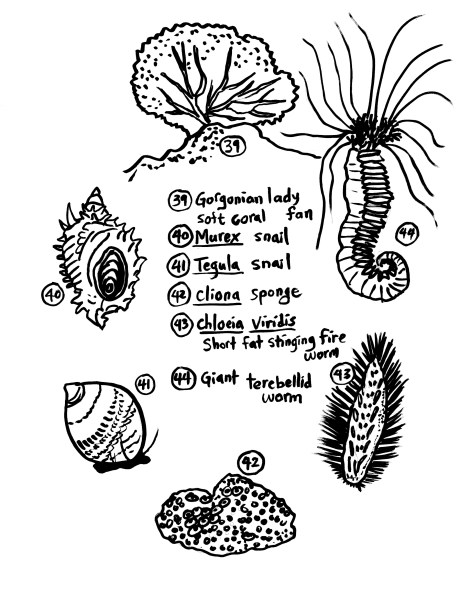 39
39 Gorgonian lady
soft coral fan
40 Murex snail
41 Tegula snail
42 Cliona sponge
43 Chloeia Viridis
Short fat stinging fire
worm
44 Giant terebellid
worm
44
40
43
41
42